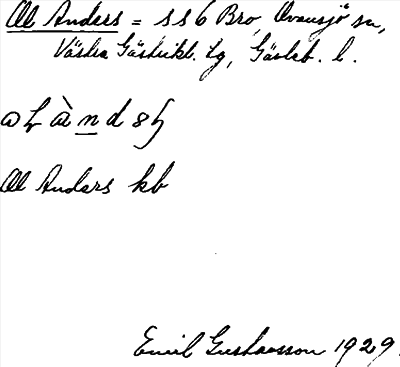 Ol Anders = s s 6 Bro, Ovansjö sn,
Västra Gästrikl. tg, Gävleb. l.
Ol Anders kb
Emil Gustavsson 1929.